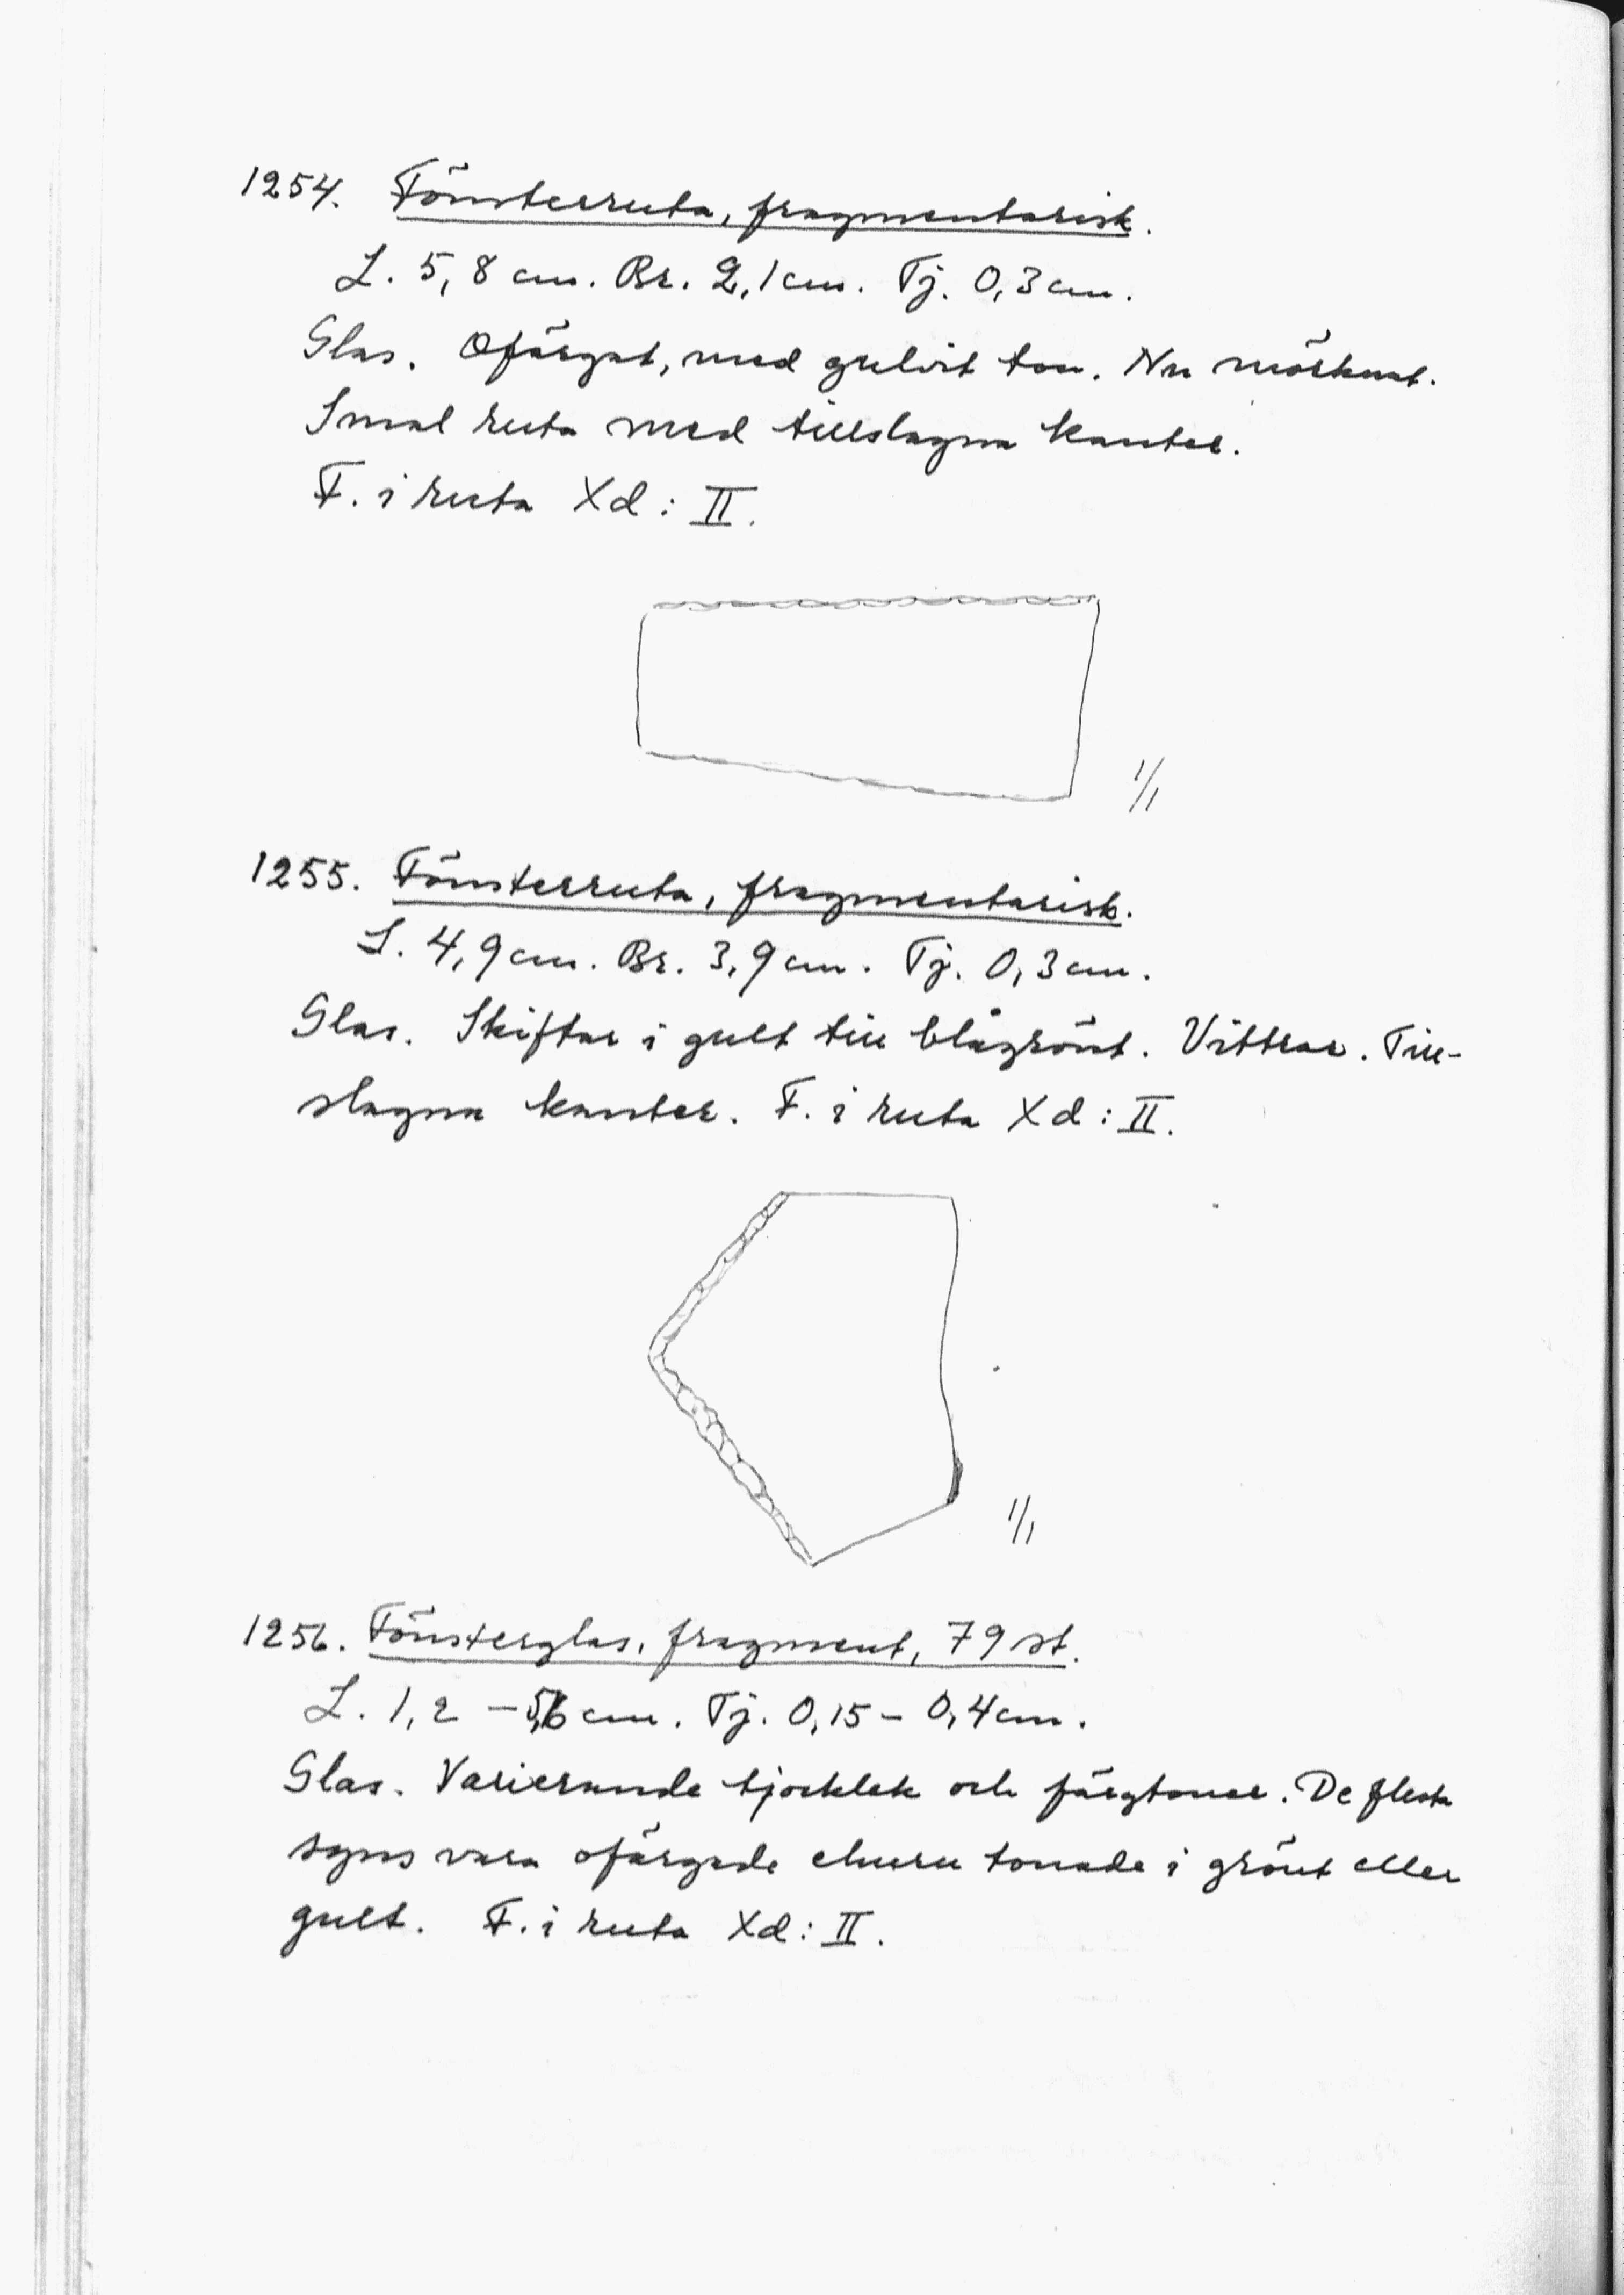 1254. Fönsterruta, fragmentarisk.
L. 5,8 cm. Br. 2,1 cm. Tj. 0,3 cm.
Glas. Ofärgat, med gulvit ton. Nu mörknat.
Smal ruta med tillslagna kanter.
F. i ruta Xd: II.
1/1
1255. Fönsterruta, fragmentarisk.
L. 4,9 cm. Br. 3,9 cm. Tj. 0,3 cm.
Glas. Skiftar i gult till blågrönt. Vittrar. Till-
slagna kanter. F. i ruta Xd: II.
1/1
1256. Fönsterglas, fragment, 79 st.
L. 1,2 – 5,6 cm. Tj. 0,15 – 0,4 cm.
Glas. Varierande tjocklek och färgtoner. De flesta
syns vara ofärgade ehuru tonade i grönt eller
gult. F. i ruta Xd: II.